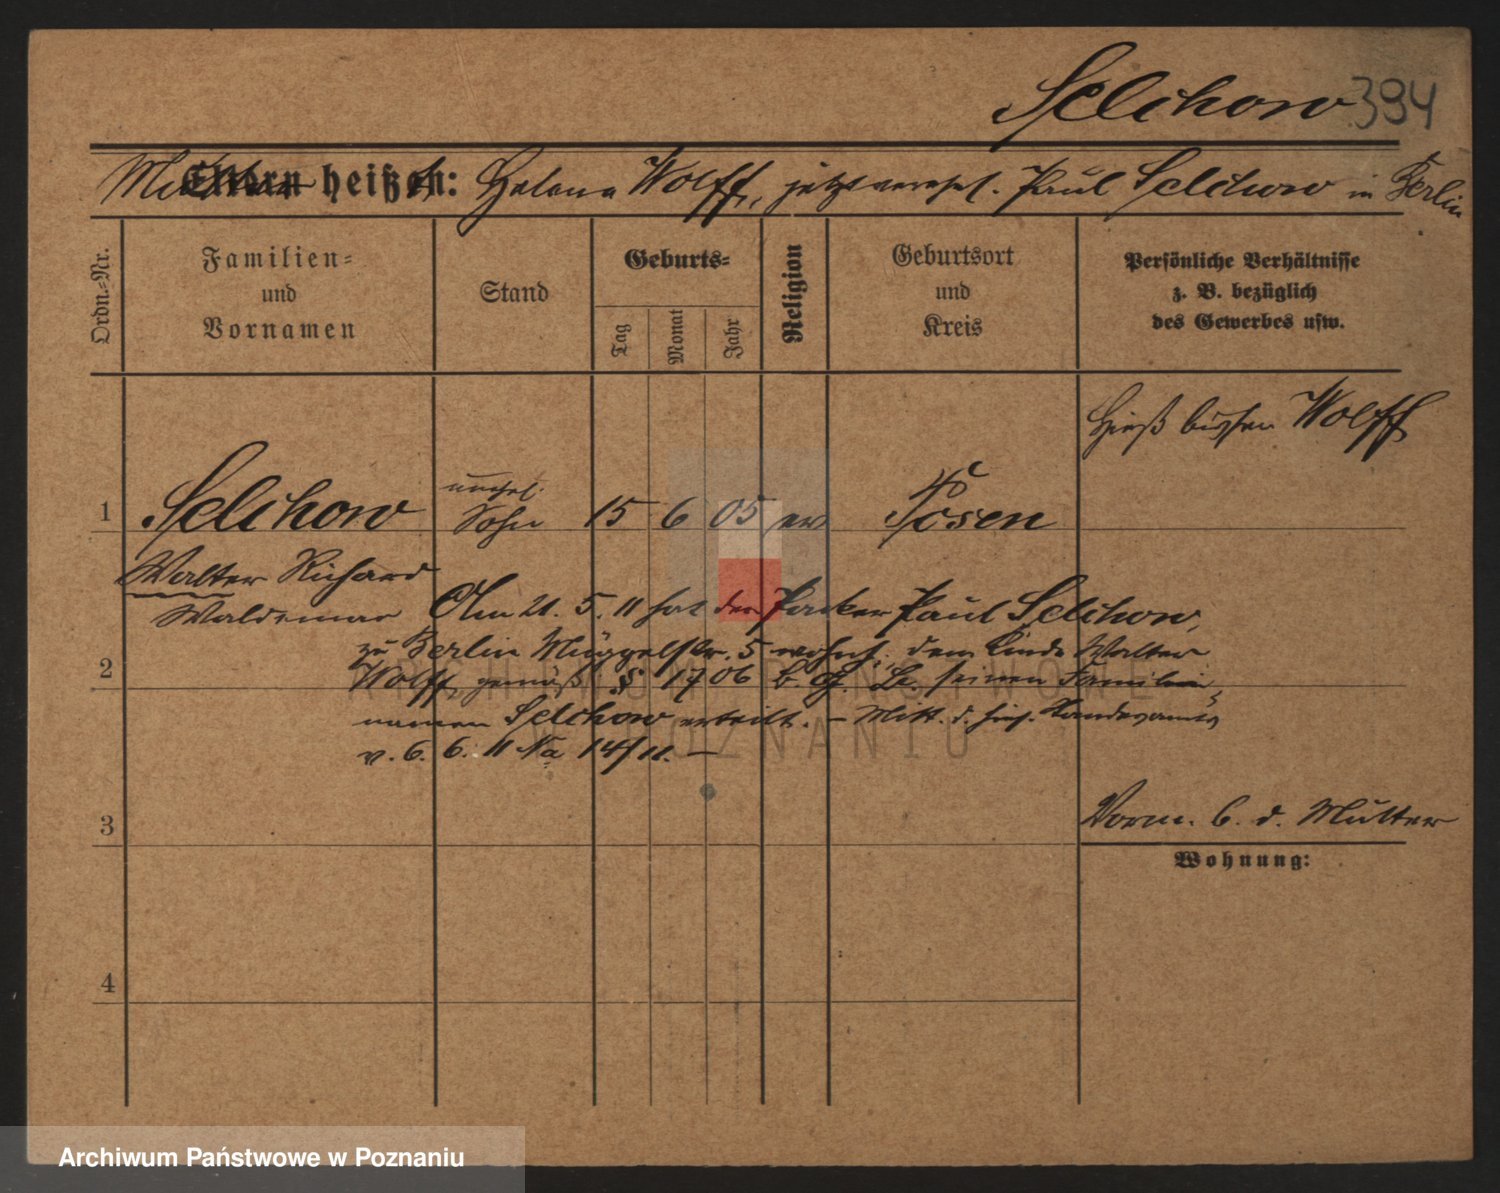 Selchow 394
Mutter heißt: Helena Wolff, jetzt verehel. Paul Selchow in Berlin
Ordn.-Nr.
Familien-
und
Vornamen
Stand
Geburts-
Tag
Monat
Jahr
Religion
Geburtsort
und
Kreis
Persönliche Verhältnisse
z. B. bezüglich
des Gewerbes usw.
Hieß bisher Wolff
unehel.
1 Selchow Sohn 15 6 05 ev Posen
Walter Richard
Waldemar
Am 21. 5. 11 hat der Packer Paul Selchow,
zu Berlin Müggelstr. 5 wohnh., dem Kinde Walter
2
Wolff gemäß § 1706 b. G. B. seinen Familien-
namen Selchow erteilt. – Mitt. d. hies. Standesamts
v. 6. 6. 11 Na 14/11. —
3
Vorm. b. d. Mutter
Wohnung:
4
ARCHIWUM PAŃSTWOWE
W POZNANIU
Archiwum Państwowe w Poznaniu